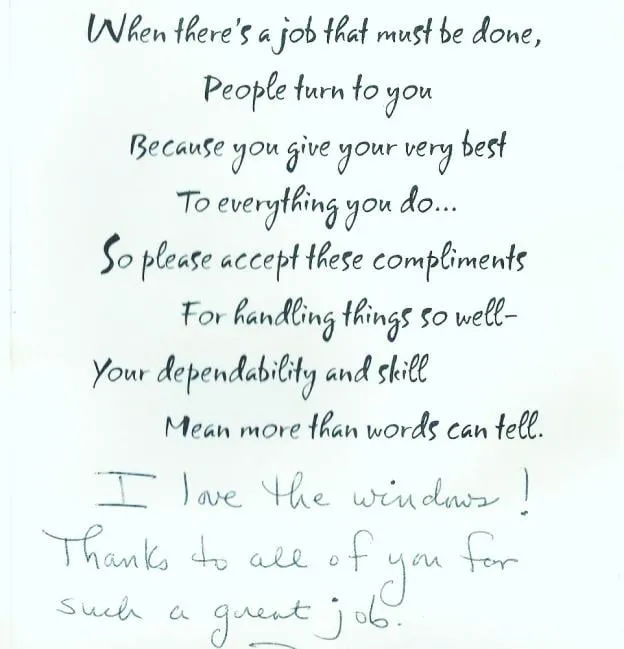 When there's a job that must be done,
People turn to you
Because you give your very best
To everything you do...
So please accept these compliments
For handling things so well-
Your dependability and skill
Mean more than words can tell.
I love the windows!
Thanks to all of you for
such a great job.